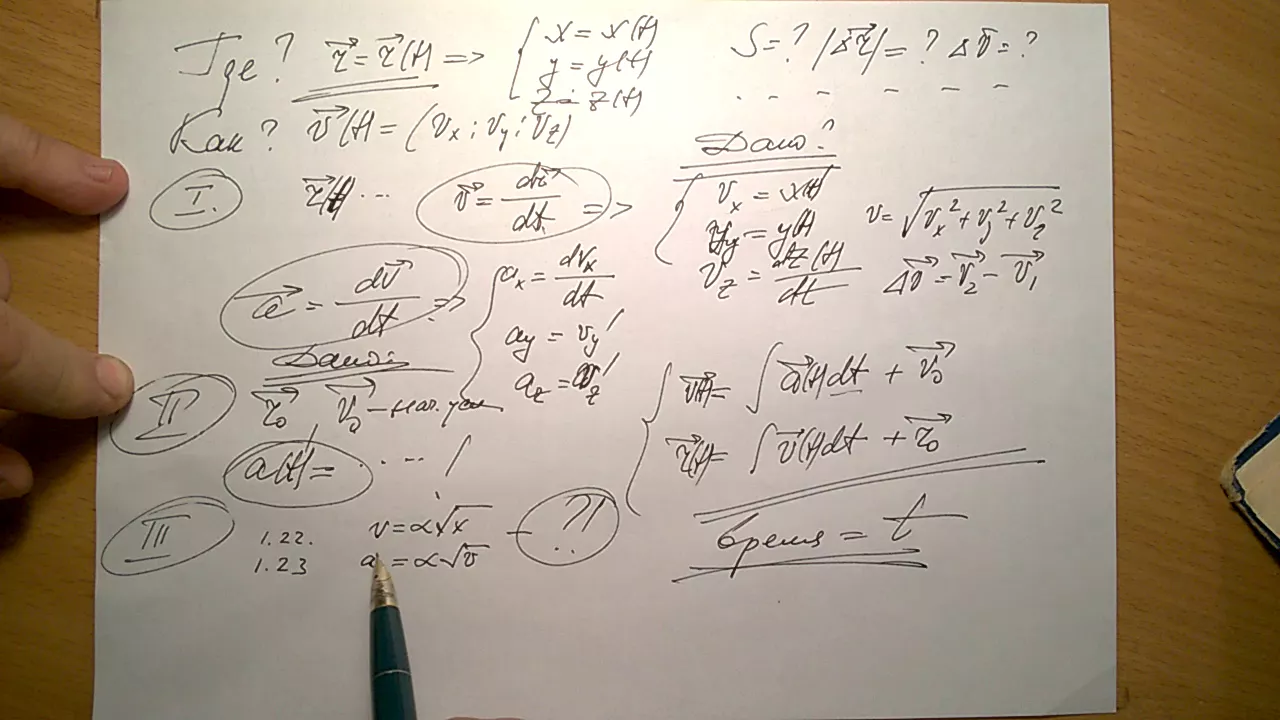 Где? r⃗ = r⃗(t) => { x = x(t)
y = y(t)
z = z(t)
S = ? |Δr⃗| = ? Δv⃗ = ?
. - - - - -
Как? v⃗(t) = (Vx; Vy; Vz)
Дано?
I. r⃗(t) ... v⃗ = dr⃗/dt =>
{ Vx = x(t)
Vy = y(t)
Vz = dz(t)/dt
v = √(Vx² + Vy² + Vz²)
Δv⃗ = v⃗2 - v⃗1
a⃗ = dv⃗/dt =>
{ ax = dVx/dt
ay = Vy'
az = Vz'
II Дано:
r⃗0 v⃗0 – нач. усл
a(t) = . . -- !
{ v⃗(t) = ∫ a⃗(t)dt + v⃗0
r⃗(t) = ∫ v⃗(t)dt + r⃗0
время = t
III 1.22. v = α√x – ?!
1.23 a = α√v